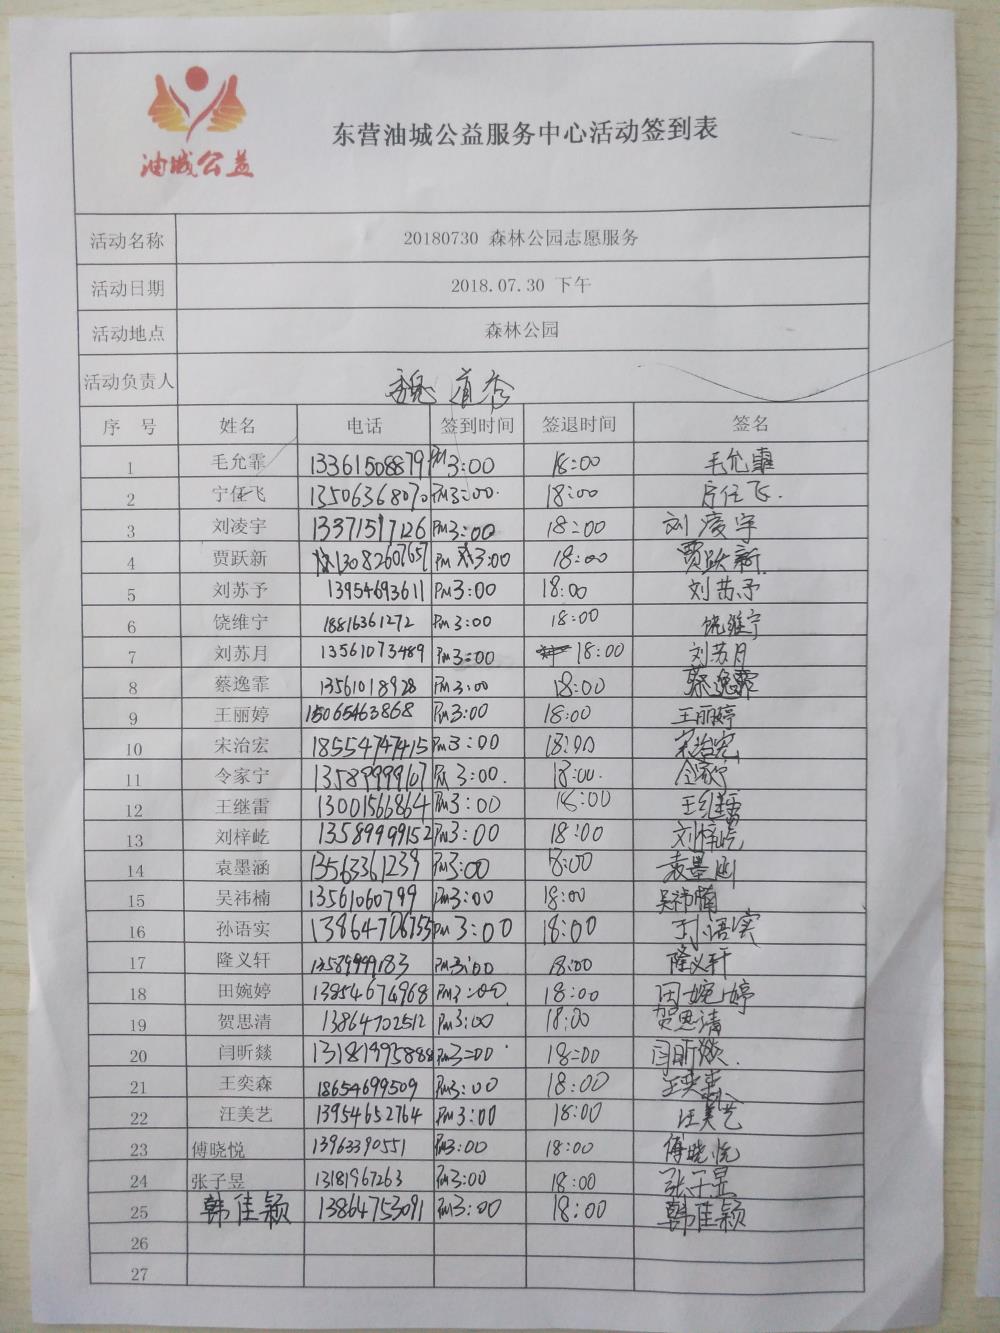 油城公益
东营油城公益服务中心活动签到表
活动名称 20180730 森林公园志愿服务
活动日期 2018.07.30 下午
活动地点 森林公园
活动负责人 魏道秀
序 号 姓名 电话 签到时间 签退时间 签名
1 毛允霏 13361508879 PM3:00 18:00 毛允霏
2 宁任飞 13506368070 PM3:00. 18:00 宁任飞.
3 刘凌宇 13371517126 PM3:00 18:00 刘凌宇
4 贾跃新 13082607657 PM 3:00 18:00 贾跃新
5 刘苏予 13954693611 PM3:00 18:00 刘苏予
6 饶维宁 18816361272 PM3:00 18:00 饶维宁
7 刘苏月 13561073489 PM3:00 18:00 刘苏月
8 蔡逸霏 13561018928 PM3:00 18:00 蔡逸霏
9 王丽婷 15065463868 PM3:00 18:00 王丽婷
10 宋治宏 18554747415 PM3:00 18:00 宋治宏
11 令家宁 13589999107 PM 3:00. 18:00. 令家宁
12 王继雷 13001566864 PM3:00 18:00 王继雷
13 刘梓屹 13589999152 PM3:00 18:00 刘梓屹
14 袁墨涵 13563361239 PM3:00 18:00 袁墨涵
15 吴祎楠 13561060799 PM3:00 18:00 吴祎楠
16 孙语实 13864706755 PM 3:00 18:00 孙语实
17 隆义轩 13589999183 PM3:00 18:00 隆义轩
18 田婉婷 13854674968 PM3:00 18:00 田婉婷
19 贺思清 13864702512 PM3:00 18:00 贺思清
20 闫昕燚 13181995888 PM3:00 18:00 闫昕燚.
21 王奕森 18654699509 PM3:00 18:00 王奕森
22 汪美艺 13954652764 PM3:00 18:00 汪美艺
23 傅晓悦 13963390551 PM3:00 18:00 傅晓悦
24 张子昱 13181967263 PM3:00 18:00 张子昱
25 韩佳颖 13864753091 PM3:00 18:00 韩佳颖
26
27